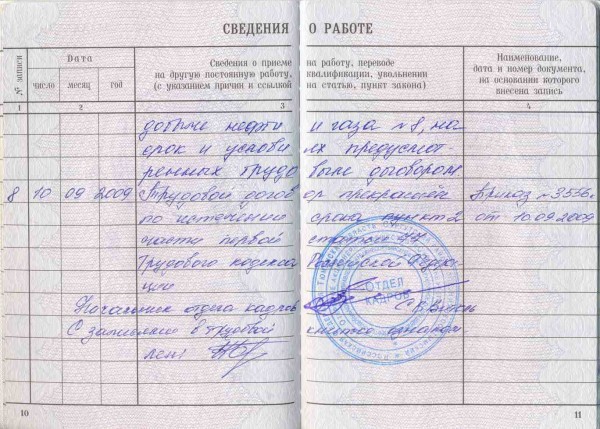 СВЕДЕНИЯ О РАБОТЕ
№ записи
Дата
число
месяц
год
Сведения о приеме на работу, переводе
на другую постоянную работу, квалификации, увольнении
(с указанием причин и ссылкой на статью, пункт закона)
Наименование,
дата и номер документа,
на основании которого
внесена запись
1 2 3 4
добыче нефти и газа №8, на
срок и услови ях предусмот-
ренных трудо вым договором
8 10 09 2009 Трудовой догов ор прекращён Приказ №3556
по истечении срока пункт 2 от 10.09.2009
части первой статьи 77
Трудового кодекса Российской Федера
ции
Начальник отдела кадров
С записями в трудовой книжке
ОТДЕЛ
КАДРОВ
10 11